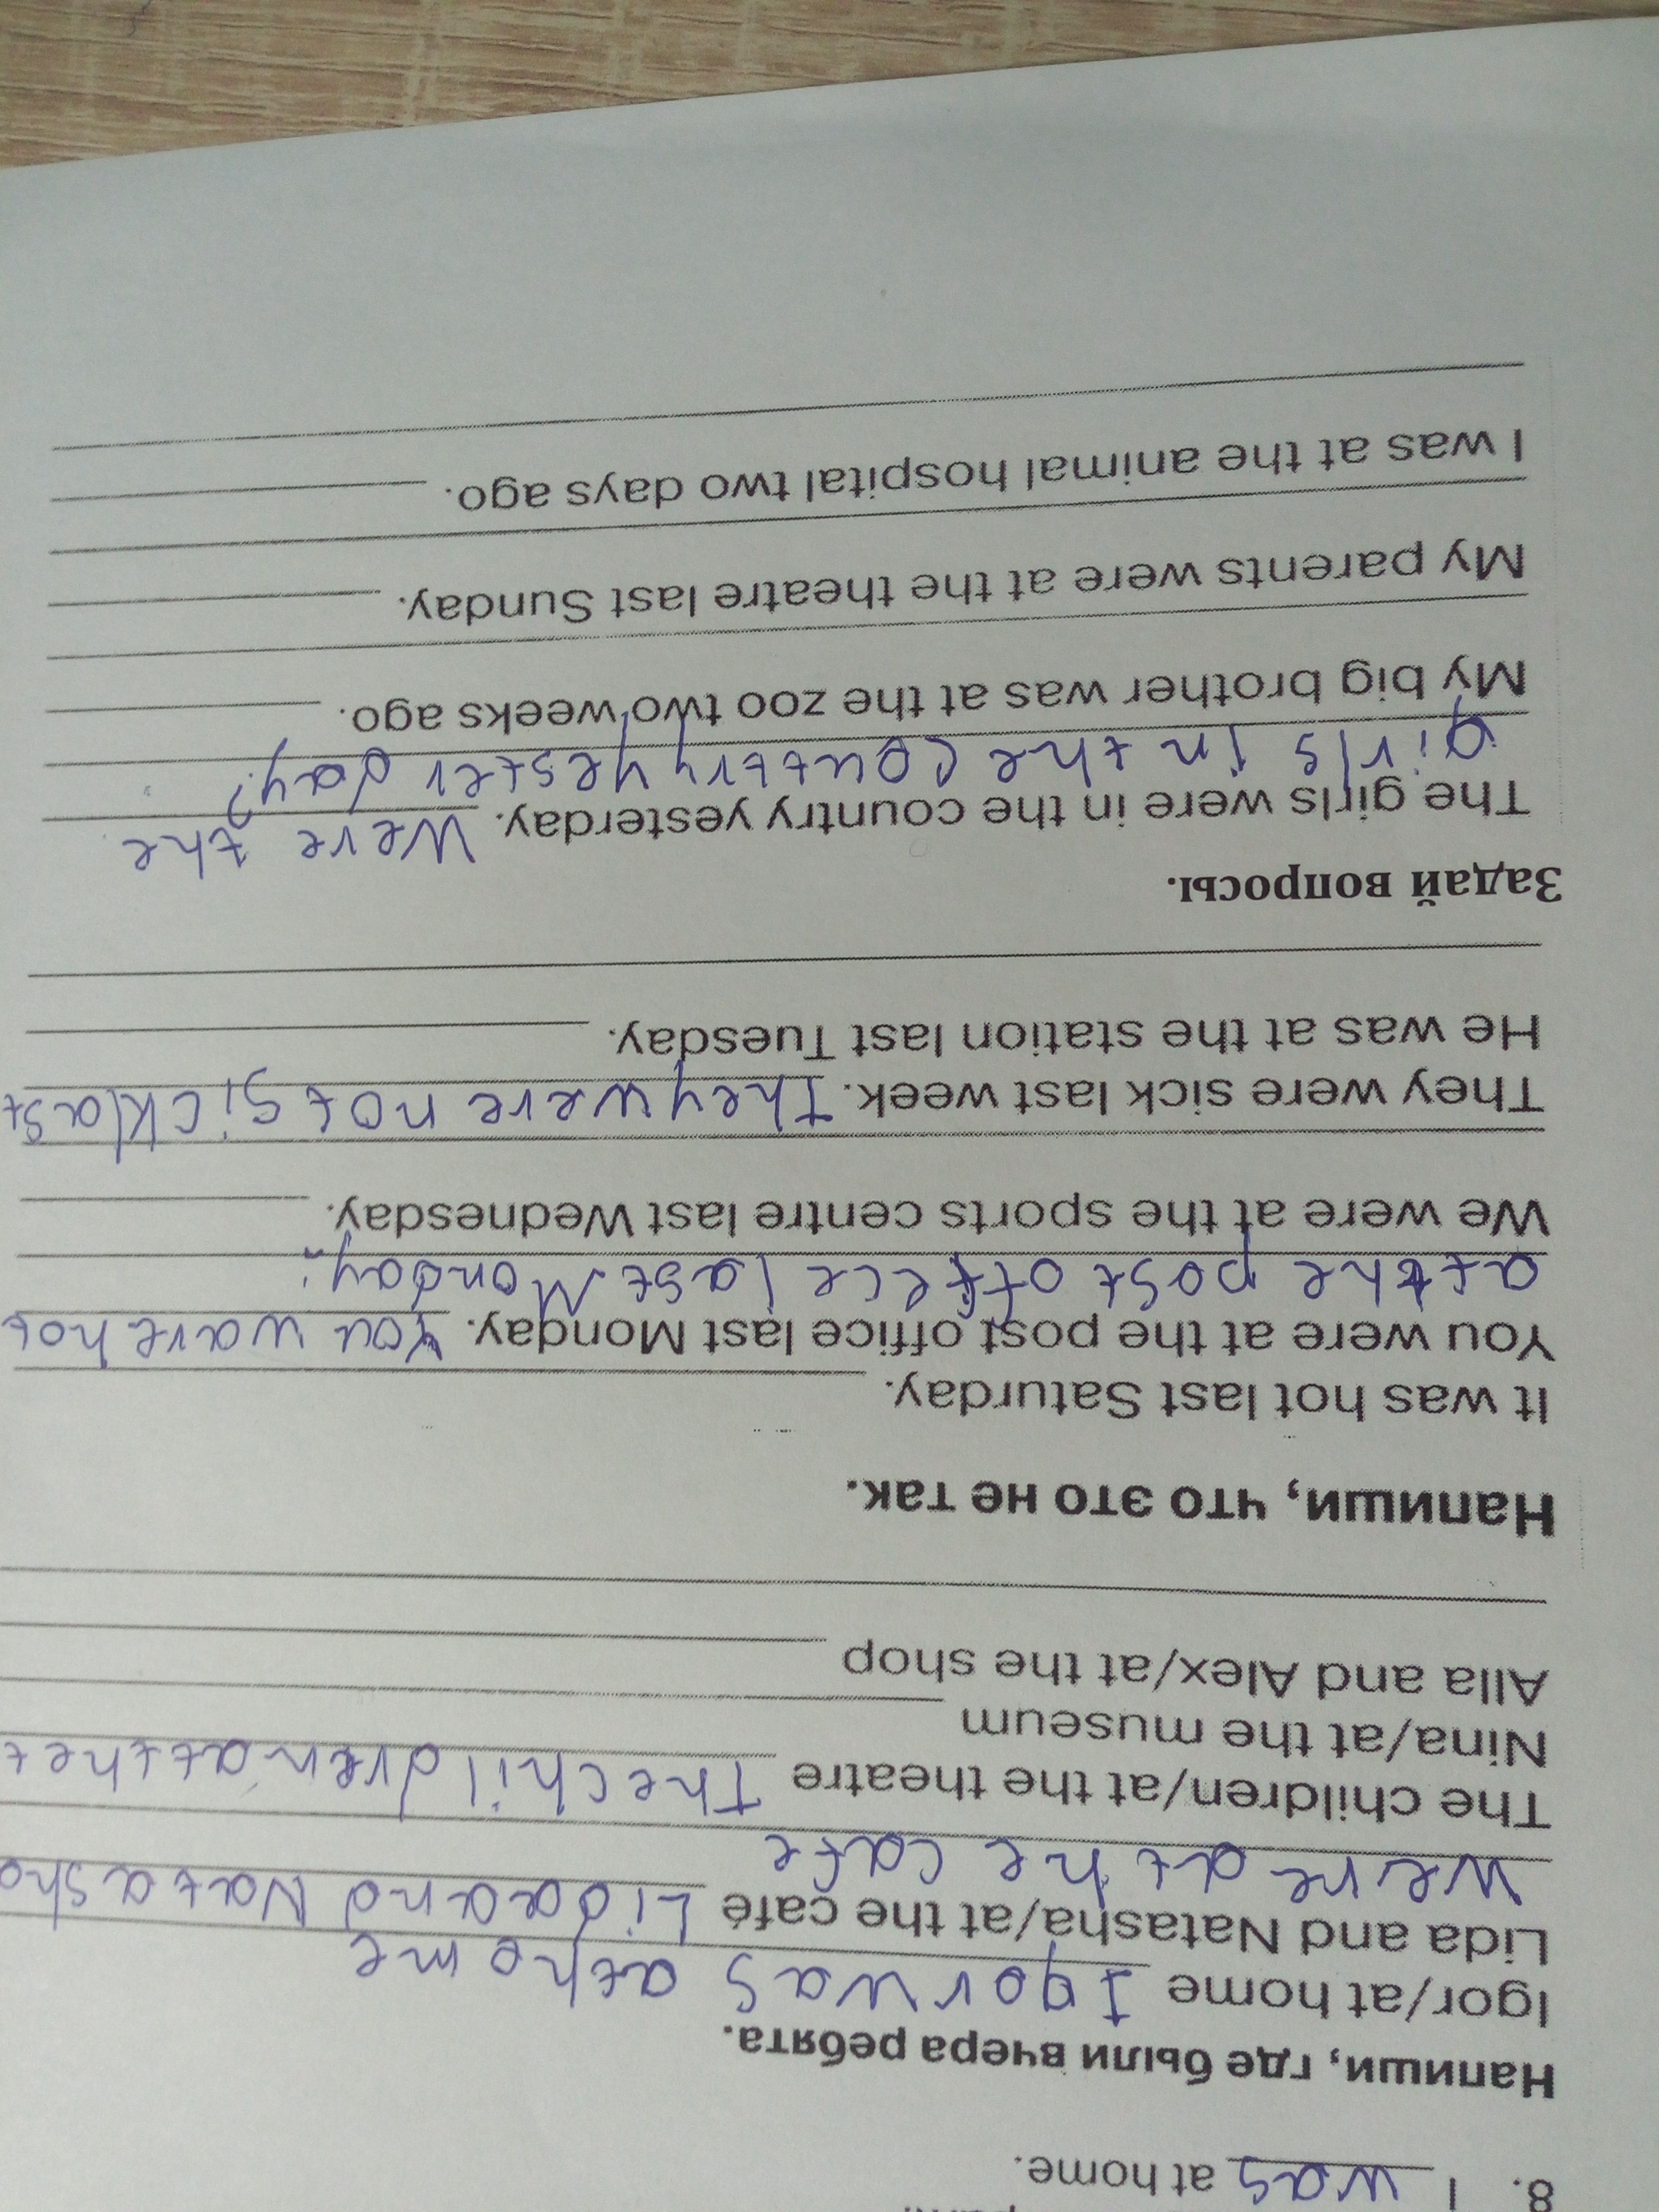 8. I was at home.
Напиши, где были вчера ребята.
Igor/at home Igor was at home
Lida and Natasha/at the café Lida and Natasha
were at he cafe
The children/at the theatre The children at the t
Nina/at the museum
Alla and Alex/at the shop
Напиши, что это не так.
It was hot last Saturday.
You were at the post office last Monday. You ware not
at the post offece last Monday.
We were at the sports centre last Wednesday.
They were sick last week. They were not sick last
He was at the station last Tuesday.
Задай вопросы.
The girls were in the country yesterday. Were the
girls in the couttry yesterday?
My big brother was at the zoo two weeks ago.
My parents were at the theatre last Sunday.
I was at the animal hospital two days ago.